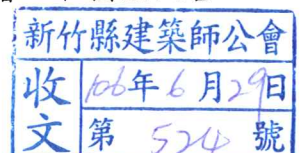 新竹縣建築師公會
收文
106年6月29日
第 524 號